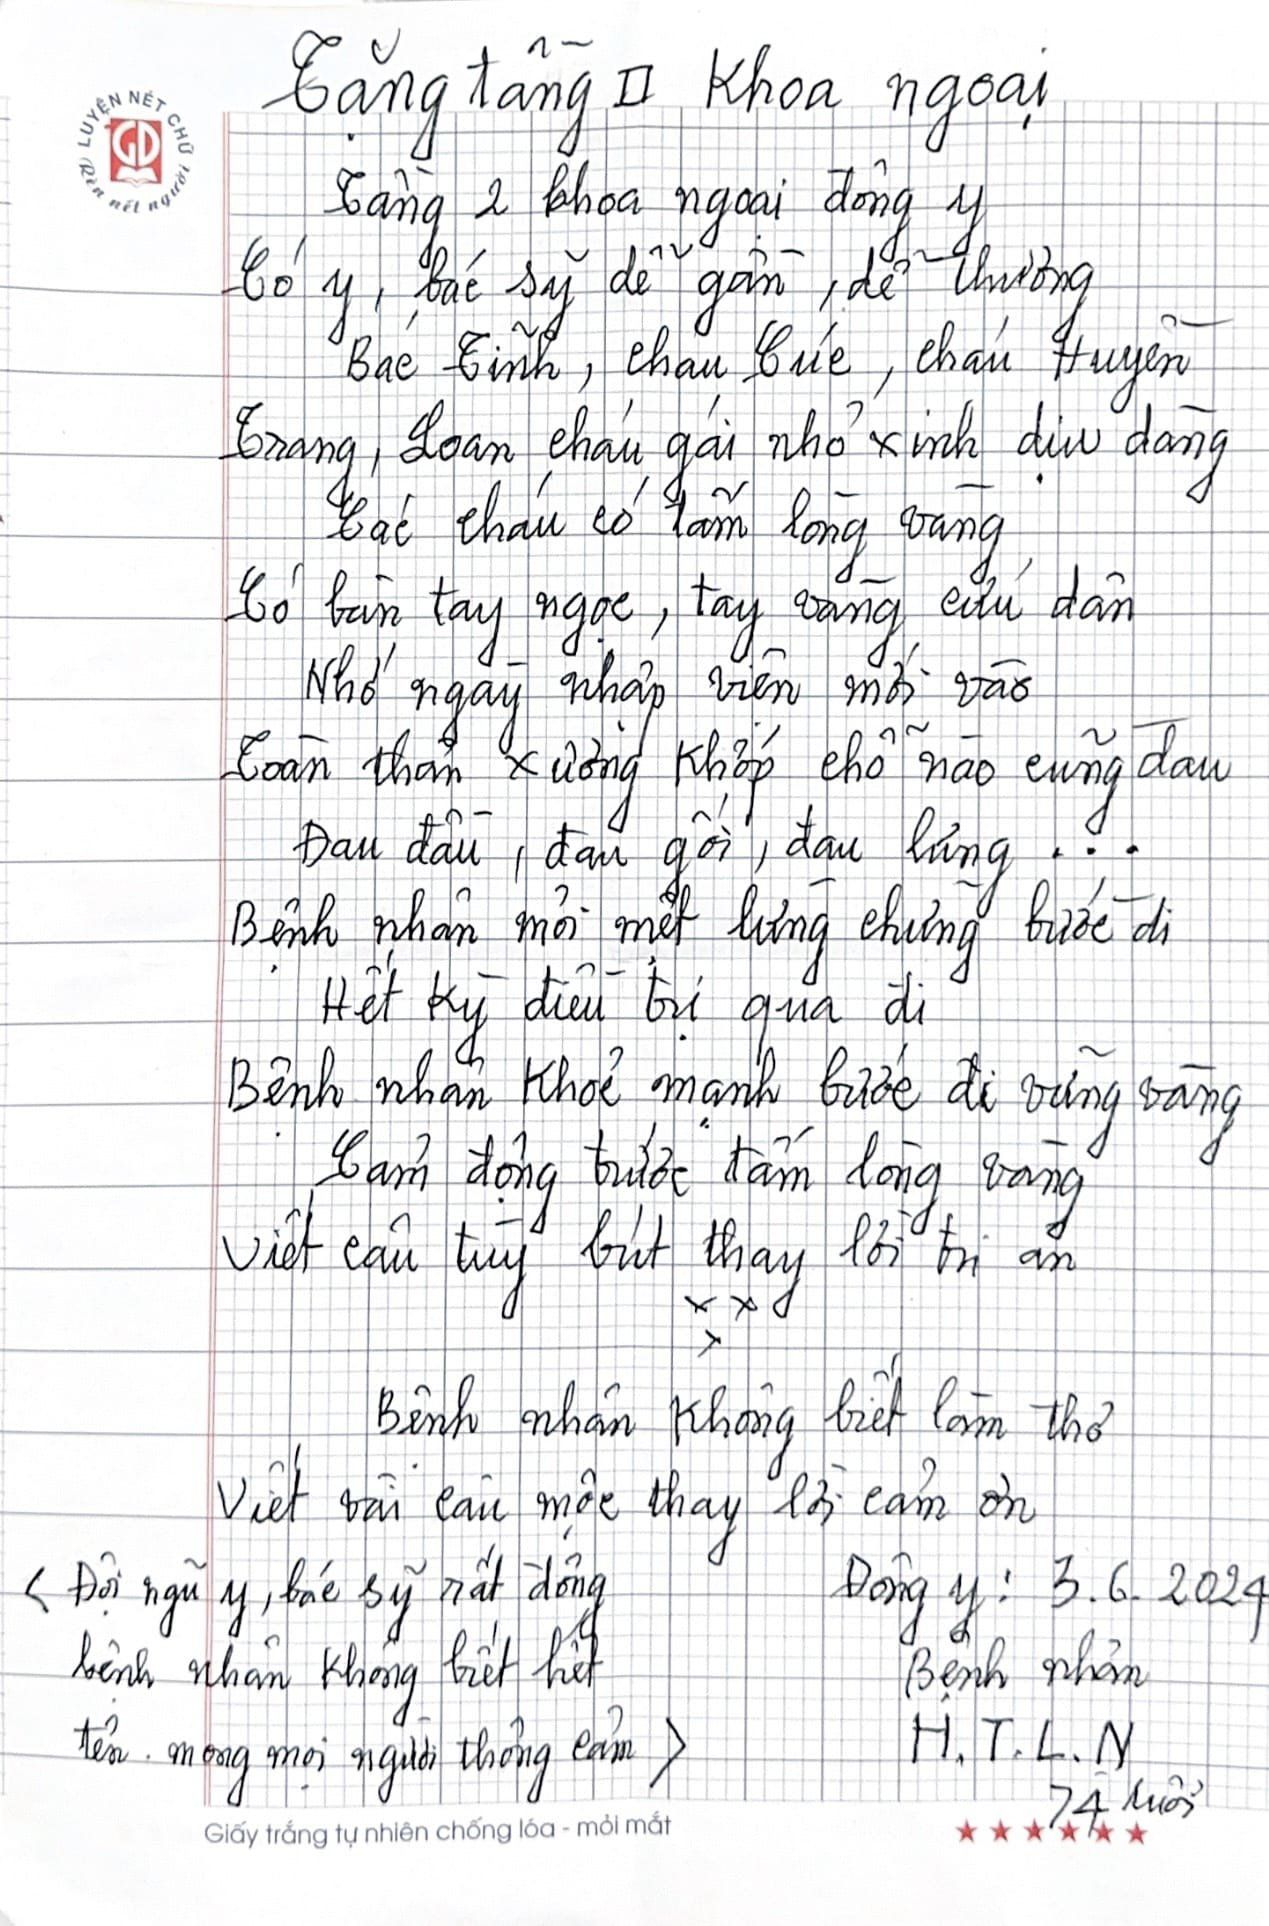 LUYỆN NÉT CHỮ
Rèn nết người
GD
Tặng tầng II Khoa ngoại
Tầng 2 khoa ngoại đông y
Có y, bác sỹ dễ gần, dễ thương
Bác Tĩnh, cháu Cúc, cháu Huyền
Trang, Loan cháu gái nhỏ xinh dịu dàng
Các cháu có tấm lòng vàng
Có bàn tay ngọc, tay vàng cứu dân
Nhớ ngày nhập viện mới vào
Toàn thân xương khớp chỗ nào cũng đau
Đau đầu, đau gối, đau lưng...
Bệnh nhân mỏi mệt lừng chừng bước đi
Hết kỳ điều trị qua đi
Bệnh nhân khoẻ mạnh bước đi vững vàng
Cảm động trước tấm lòng vàng
Viết câu tùy bút thay lời tri ân
x x
x
Bệnh nhân không biết làm thơ
Viết vài câu mộc thay lời cảm ơn
< Đội ngũ y, bác sỹ rất đông
bệnh nhân không biết hết
tên. mong mọi người thông cảm >
Đông y: 3.6.2024
Bệnh nhân
H.T.L.N
74 tuổi
Giấy trắng tự nhiên chống lóa - mỏi mắt
★ ★ ★ ★ ★ ★